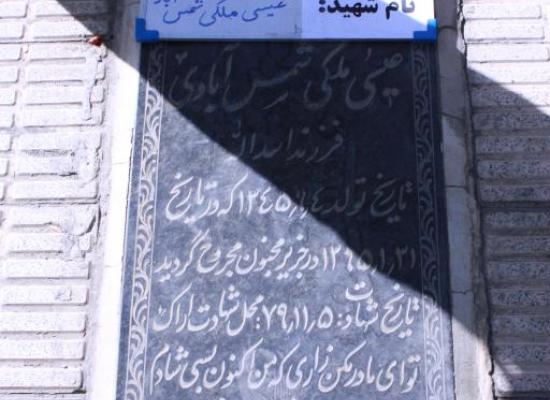 نام شهید:
عیسی ملکی شمس
عیسی ملکی شمس آبادی
فرزند اسدالله
تاریخ تولد ۱۳۴۵٫۱٫۴ که در تاریخ
۱۳۶۵٫۱٫۳۱ در جزیر مجنون مجروح گردید
تاریخ شهادت: ۷۹٫۱۱٫۵ محل شهادت اراک
تو ای مادر مکن زاری که من اکنون بسی شادم